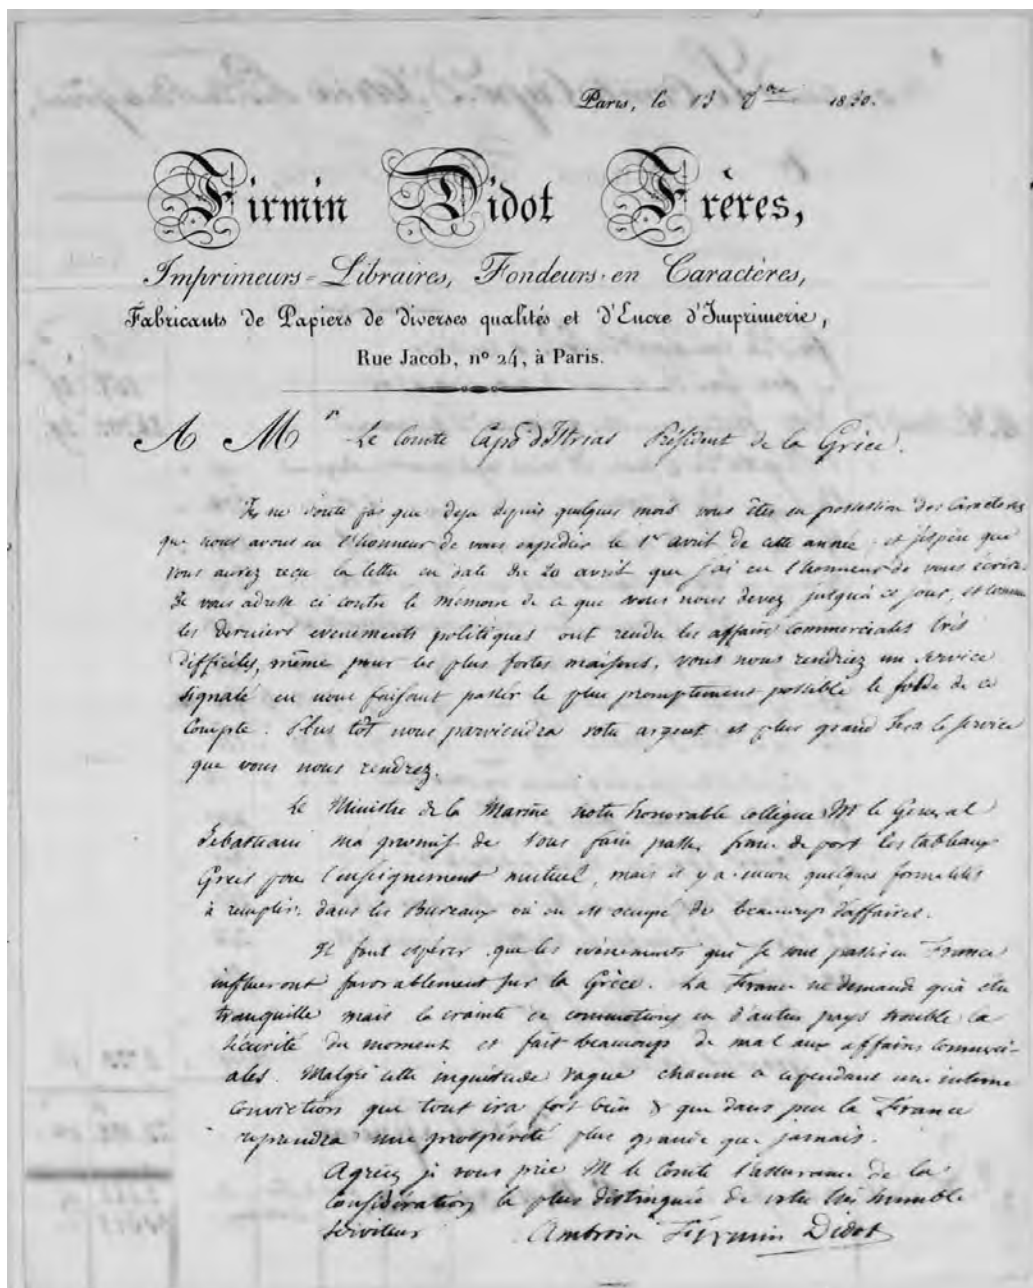 Paris, le 13 7bre 1830.
Firmin Didot Frères,
Imprimeurs=Libraires, Fondeurs en Caractères,
Fabricants de Papiers de diverses qualités et d'Encre d'Imprimerie,
Rue Jacob, nº 24, à Paris.
A Mr Le Comte Capo d'Istrias Président de la Grèce.
Je ne doute pas que deja depuis quelques mois vous êtes en possession des caractères
que nous avons eu l'honneur de vous expédier le 1er avril de cette année et j'espère que
vous aurez reçu la lettre en date du 20 avril que j'ai eu l'honneur de vous écrire.
Je vous adresse ci contre le mémoire de ce que vous nous devez jusqu'à ce jour, et comme
les derniers evenements politiques ont rendu les affaires commerciales très
difficiles, même pour les plus fortes maisons, vous nous rendriez un service
signalé en nous faisant passer le plus promptement possible le solde de ce
compte. Plus tôt nous parviendra votre argent et plus grand sera le service
que vous nous rendrez.
Le Ministre de la Marine notre honorable collègue Mr le Général
Sebastiani m'a promis de vous faire passer franc de port les tableaux
Grecs pour l'enseignement mutuel, mais il y a encore quelques formalités
à remplir dans les Bureaux où on est occupé de beaucoup d'affaires.
Il faut espérer que les evénements qui se sont passés en France
influeront favorablement sur la Grèce. La France ne demande qu'à être
tranquille mais la crainte de commotions en d'autres pays trouble la
sécurité du moment et fait beaucoup de mal aux affaires commerci-
ales. Malgré cette inquiétude vague chacun a cependant une intime
conviction que tout ira fort bien & que dans peu la France
reprendra une prospérité plus grande que jamais.
Agréez je vous prie M le Comte l'assurance de la
considération la plus distinguée de votre très humble
serviteur Ambroise Firmin Didot